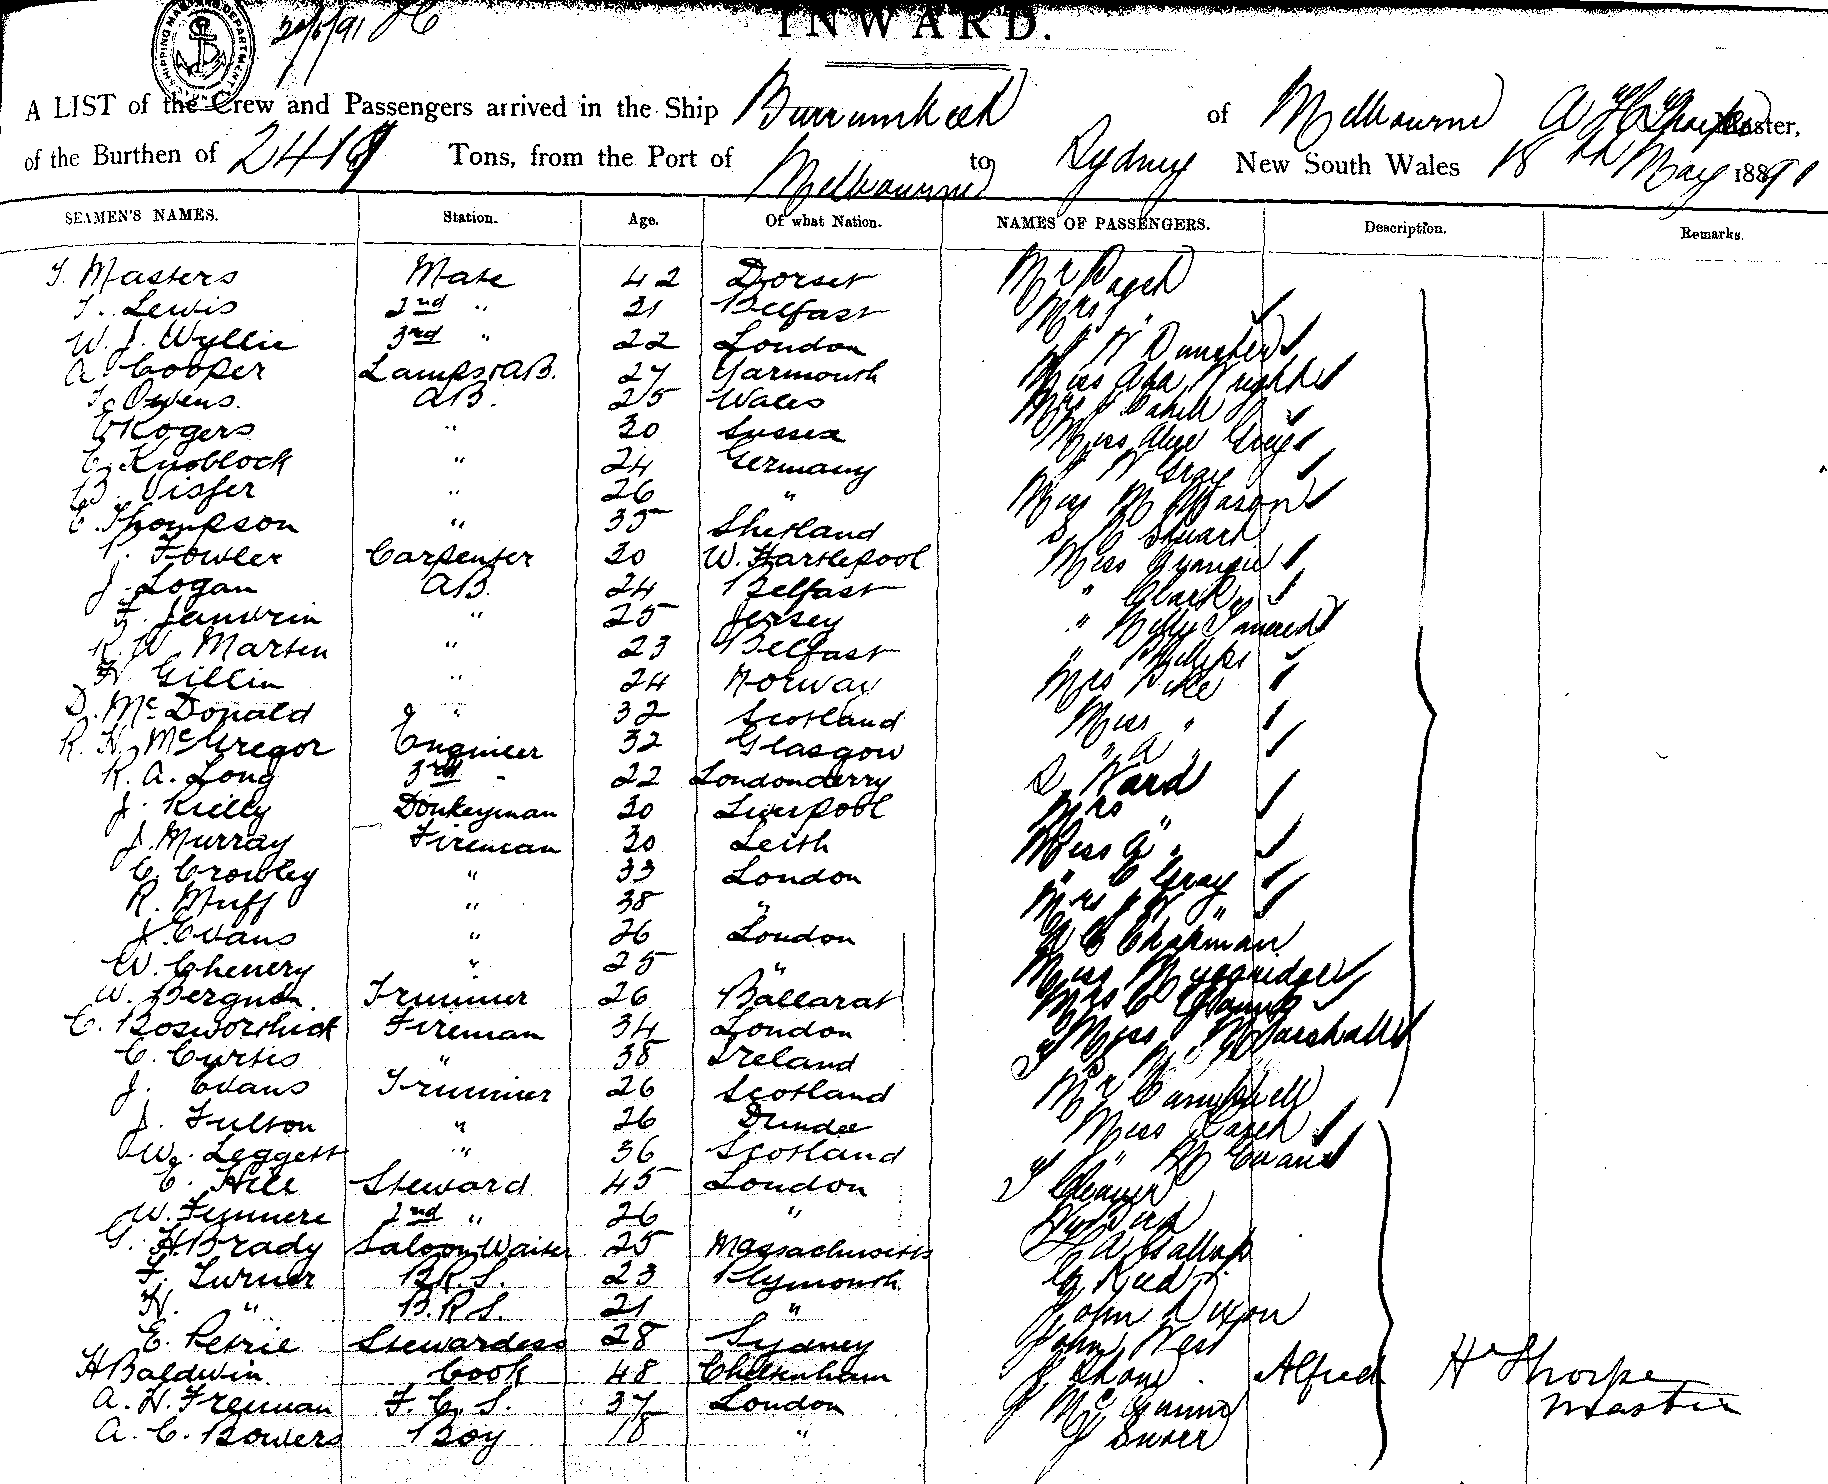 SHIPPING MASTERS DEPARTMENT
INWARD.
A LIST of the Crew and Passengers arrived in the Ship Burrumbeet of Melbourne A H Thorpe Master,
of the Burthen of 2419 Tons, from the Port of Melbourne to Sydney New South Wales 18th May 1891
SEAMEN'S NAMES. Station. Age. Of what Nation. NAMES OF PASSENGERS. Description. Remarks.
Masters Mate 42 Dorset Mr
Lewis 2nd " 31 Belfast Mrs "
W. J. Wyllie 3rd " 22 London
A Cooper Lamps & AB. 27 Yarmouth Miss Ada Wright
Owens. AB. 25 Wales Mrs J Cahill
Rogers " 30 Sussex Miss Alice Grey
Knoblock " 24 Germany J W Gray
Visser " 26 " Miss M Mason
Thompson " 35 Shetland Stuart
Fowler Carpenter 30 W. Hartlepool Miss
J. Logan AB. 24 Belfast " Clark
F. Janvrin " 25 Jersey "
R. W. Marten " 23 Belfast " Phillips
H Gillin " 24 Norway Mrs Pike
D. McDonald " 32 Scotland Miss "
R. H. McGregor Engineer 32 Glasgow " A "
R. A. Long 3rd " 22 Londonderry Ward
J. Kielly Donkeyman 30 Liverpool Mrs "
J. Murray Fireman 30 Leith Miss A "
C. Crowley " 33 London " C Gray
R. Muff " 38 " Mrs J W "
J. Evans " 26 London Chapman
W. Chenery " 25 " Miss Muggridge
W. Trimmer 26 Ballarat Mrs C
C. Fireman 34 London Miss Marshall
C. Curtis " 38 Ireland
J. Evans Trimmer 26 Scotland Mr Campbell
J. Fulton " 26 Dundee Miss
W. Leggett " 36 Scotland " M Evans
E. Hill Steward 45 London
W. 2nd " 26 "
G. H Brady Saloon Waiter 25 Massachusetts
Turner B.R.S. 23 Plymouth G Reed
H. " B.R.S. 21 " John Dixon
E. Petrie Stewardess 28 Sydney John West
H Baldwin Cook 48 Cheltenham Alfred Hy Thorpe
A. H. Freeman F.C.S. 37 London Master
A. C. Bowers Boy 18 "